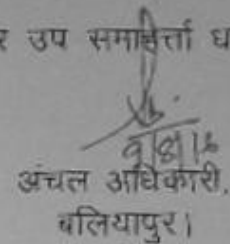 र उप समाहर्त्ता ध
अंचल अधिकारी,
बलियापुर।